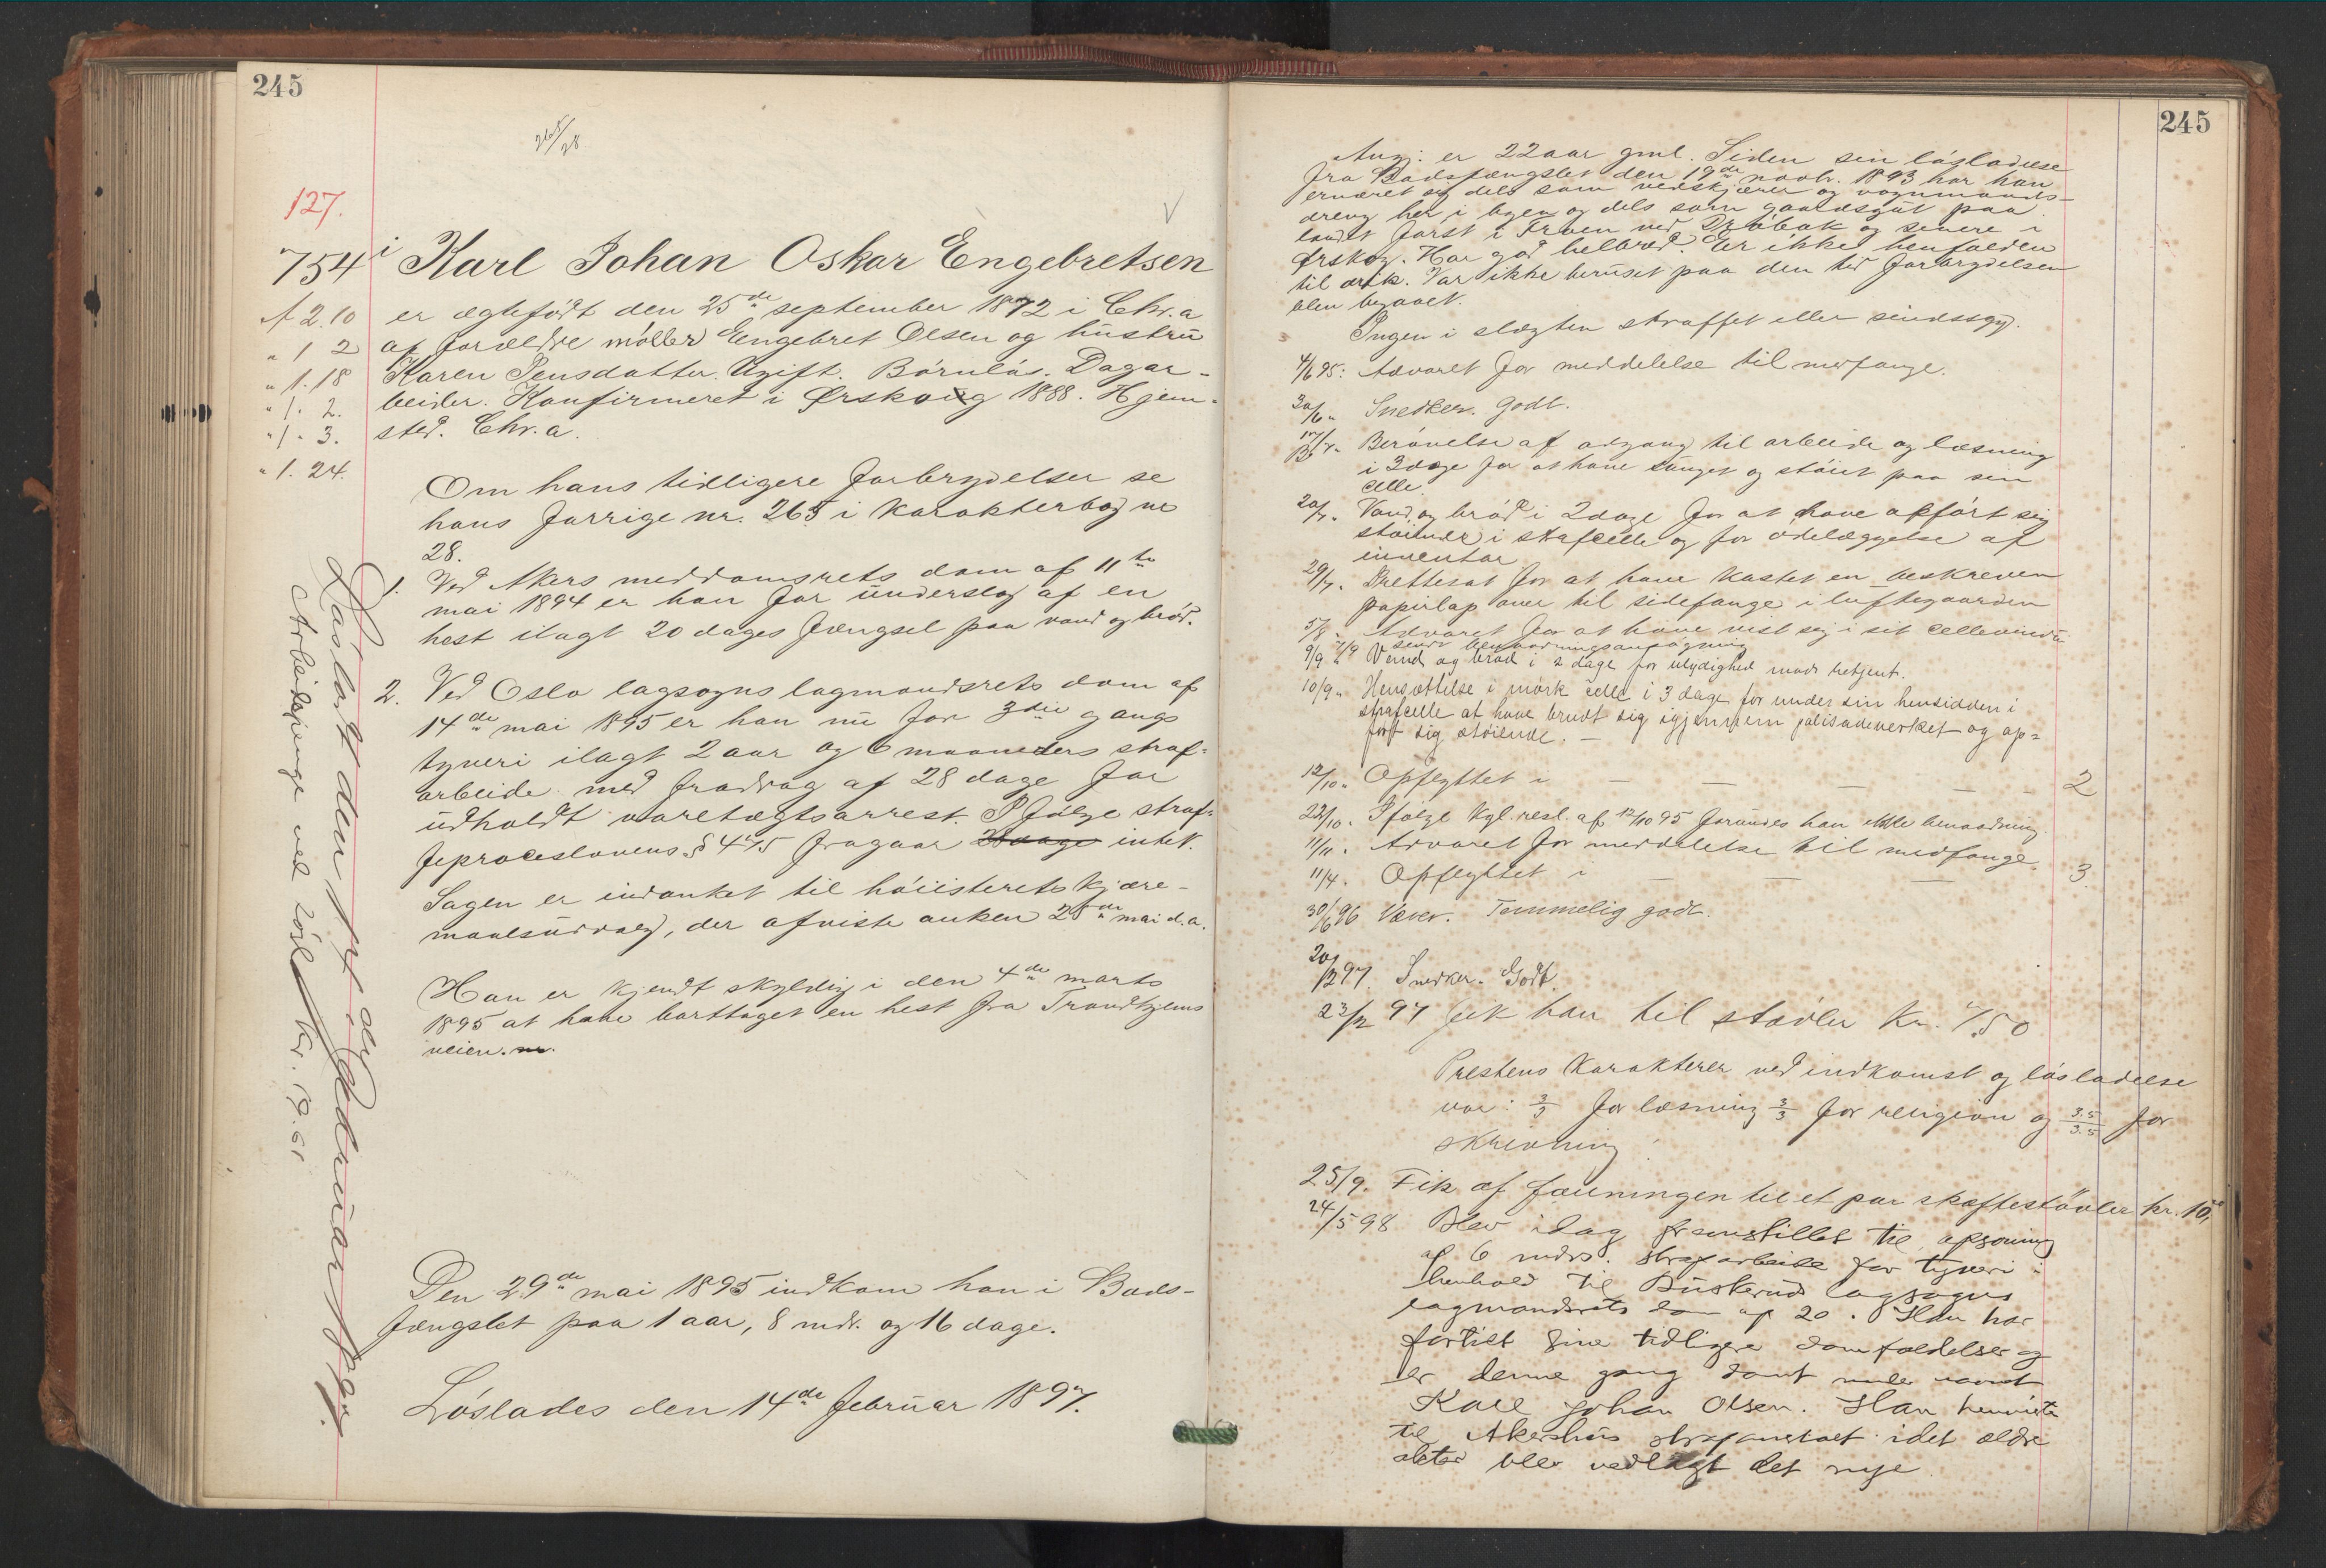 245
265/28
127.
754 i Karl Johan Oskar Engebretsen
A 2.10 er ægtefødt den 25de september 1872 i Chr.a
" 1 2 af forældre møller Engebret Olsen og hustru
" 1.18 Karen Jensdatter. Ugift. Barnløs. Dagar-
" 1. 2. beider. Konfirmeret i Ørskog 1888. Hjem-
" 1. 3. sted. Chr.a.
" 1. 24.
Om hans tidligere forbrydelser se
hans forrige nr. 265 i karakterbog no
28.
1. Ved Akers meddomsrets dom af 11te
mai 1894 er han for underslag af en
hest ilagt 20 dages fængsel paa vand og brød.
2. Ved Oslo lagsogns lagmandsrets dom af
14de mai 1895 er han nu for 3die gangs
tyveri ilagt 2 aar og 6 maaneders straf-
arbeide med fradrag af 28 dage for
udholdt varetægtsarrest. Ifølge straf-
feproceslovens § 475 fragaar 2 dage intet.
Sagen er indanket til høiesterets kjære-
maalsudvalg, der afviste anken 25de mai d.a.
Han er kjendt skyldig i den 4de marts
1895 at have borttaget en hest fra Trondhjems
veien.
Den 29de mai 1895 indkom han i Bods-
fængslet paa 1 aar, 8 mdr. og 16 dage.
Løslades den 14de februar 1897.
Løsladt den 14de februar 1897.
Arbeidspenge ved løsl. Kr. 19.61
245
Angj. er 22 aar gml. Siden sin løsladelse
fra Bodsfængslet den 19de novbr. 1893 har han
ernæret sig dels som vedskjærer og vognmands-
dreng her i byen og dels som gaardsgut paa
landet først i Froen ved Drøbak og senere i
Ørskog. Har god helbred. Er ikke henfalden
til drik. Var ikke beruset paa den tid forbrydelsen
blev begaaet.
Ingen i slægten straffet eller sindssyg.
4/6 95: Advaret for meddelelse til medfange.
30/6 " Snedker. Godt.
17/7 " Berøvelse af adgang til arbeide og læsning
i 3 dage for at have sunget og støiet paa sin
celle.
20/7 " Vand og brød i 2 dage for at have opført sig
støiende i strafcelle og for ødelæggelse af
inventar
29/7 " Irettesat for at have kastet en beskreven
papirlap over til sidefange i luftegaarden
5/8 " Advaret for at have vist sig i sit cellevindu
7/9 sendt benaadningsansøgning
9/9 " Vand og brød i 2 dage for ulydighed mod betjent.
10/9 " Hensættelse i mørk celle i 3 dage for under sin hensidden i
strafcelle at have brudt sig igjennem palisadeverket og op=
ført sig støiende. —
12/10 " Opflyttet i — — — — 2
22/10 " Ifølge kgl. resl. af 12/10 95 forundes han ikke benaadning.
11/11 " Advaret for meddelelse til medfange.
11/4 " Opflyttet i — — — 3.
30/6 96 Væver. Temmelig godt.
20/1297. Snedker. Godt.
23/12 97 fik han til støvler Kr. 7.50
Prestens karakterer ved indkomst og løsladelse
var: 3/3 for læsning 3/3 for religion og 3.5/3.5 for
skrivning
25/9. Fik af foreningen til et par skaftestøvler kr. 10,-
24/5 98 Blev idag fremstillet til afsoning
af 6 mdrs. strafarbeide for tyveri i
henhold til Buskeruds lagsogns
lagmandsrets dom af 20. Han har
fortiet sine tidligere domfældelser og
er denne gang dømt under navnet
Karl Johan Olsen. Han henviste
til Akershus strafanstalt idet ældre
akter blev vedlagt det nye.